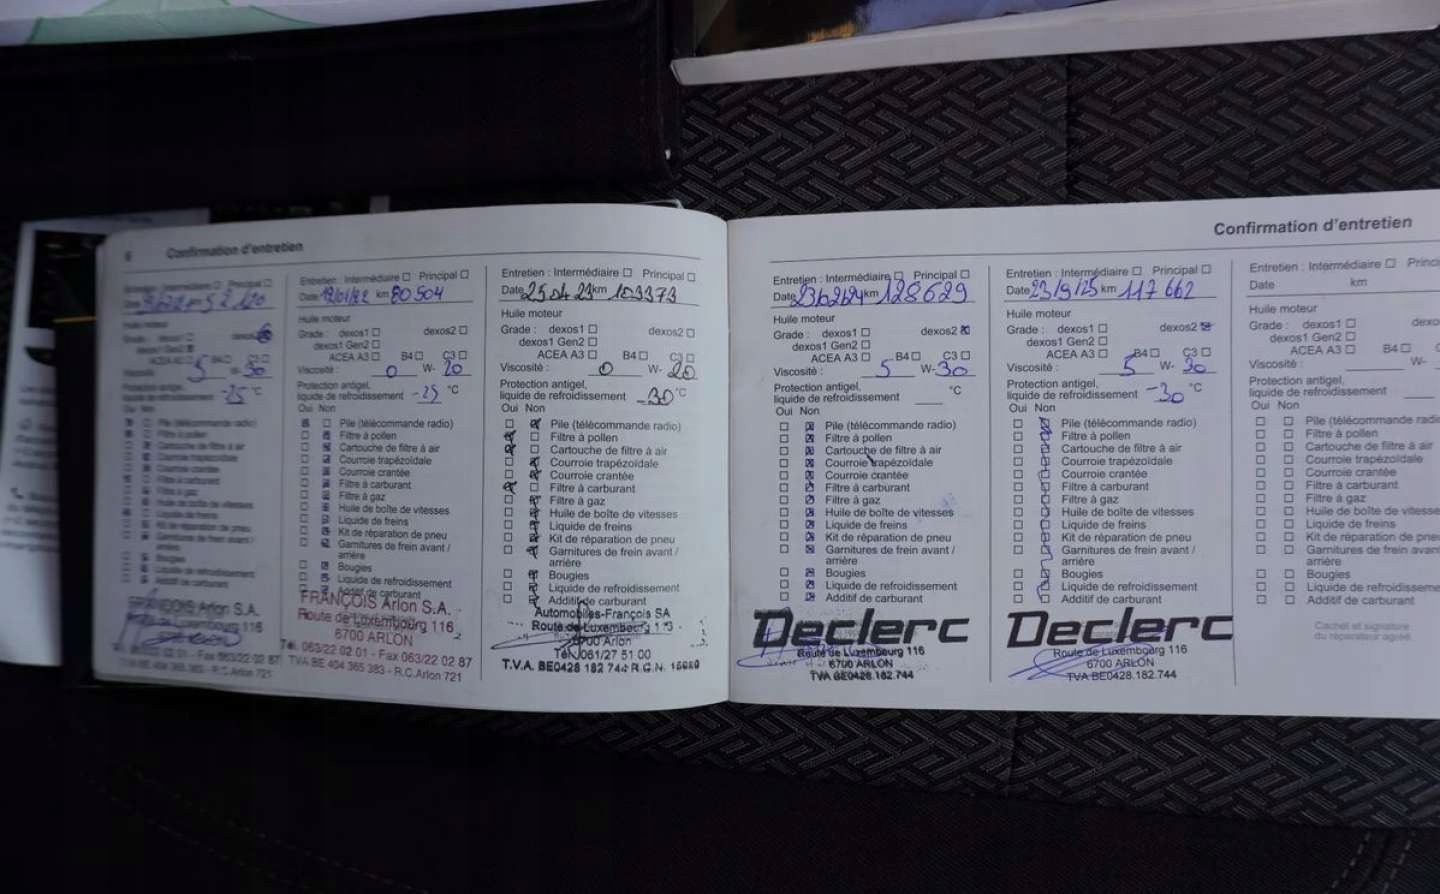 6 Confirmation d'entretien
Entretien : Intermédiaire ☐ Principal ☐
Huile moteur
Grade :
dexos1 Gen2
ACEA A3 B4 C3
Viscosité : 5 W-30
Protection antigel,
liquide de refroidissement -25 °C
Oui Non
Pile (télécommande radio)
Filtre à pollen
Cartouche de filtre à air
Courroie trapézoïdale
Courroie crantée
Filtre à carburant
Filtre à gaz
Huile de boîte de vitesses
Liquide de freins
Kit de réparation de pneu
Garnitures de frein avant /
arrière
Bougies
Liquide de refroidissement
Additif de carburant
FRANÇOIS Arlon S.A.
Route de Luxembourg 116
Entretien : Intermédiaire ☐ Principal ☐
Date 12/01/22 km 80504
Huile moteur
Grade : dexos1 ☐ dexos2 ☐
dexos1 Gen2 ☐
ACEA A3 ☐ B4 ☐ C3 ☐
Viscosité : 0 W- 20
Protection antigel,
liquide de refroidissement -25 °C
Oui Non
Pile (télécommande radio)
Filtre à pollen
Cartouche de filtre à air
Courroie trapézoïdale
Courroie crantée
Filtre à carburant
Filtre à gaz
Huile de boîte de vitesses
Liquide de freins
Kit de réparation de pneu
Garnitures de frein avant /
arrière
Bougies
Liquide de refroidissement
Additif de carburant
FRANÇOIS Arlon S.A.
Route de Luxembourg 116
6700 ARLON
Tél. 063/22 02 01 - Fax 063/22 02 87
TVA BE 404 365 383 - R.C. Arlon 721
Entretien : Intermédiaire ☐ Principal ☐
Date 25 04 23 km 103373
Huile moteur
Grade : dexos1 ☐ dexos2 ☐
dexos1 Gen2 ☐
ACEA A3 ☐ B4 ☐ C3 ☐
Viscosité : 0 W- 20
Protection antigel,
liquide de refroidissement -30 °C
Oui Non
Pile (télécommande radio)
Filtre à pollen
Cartouche de filtre à air
Courroie trapézoïdale
Courroie crantée
Filtre à carburant
Filtre à gaz
Huile de boîte de vitesses
Liquide de freins
Kit de réparation de pneu
Garnitures de frein avant /
arrière
Bougies
Liquide de refroidissement
Additif de carburant
Automobiles-François SA
Route de Luxembourg 116
6700 Arlon
Tél. 061/27 51 00
T.V.A. BE0428 182 744
Confirmation d'entretien
Entretien : Intermédiaire ☐ Principal ☐
Date 23/02/24 km 128629
Huile moteur
Grade : dexos1 ☐ dexos2 ☒
dexos1 Gen2 ☐
ACEA A3 ☐ B4 ☐ C3 ☐
Viscosité : 5 W- 30
Protection antigel,
liquide de refroidissement °C
Oui Non
Pile (télécommande radio)
Filtre à pollen
Cartouche de filtre à air
Courroie trapézoïdale
Courroie crantée
Filtre à carburant
Filtre à gaz
Huile de boîte de vitesses
Liquide de freins
Kit de réparation de pneu
Garnitures de frein avant /
arrière
Bougies
Liquide de refroidissement
Additif de carburant
Declerc
Route de Luxembourg 116
6700 ARLON
TVA BE0428.182.744
Entretien : Intermédiaire ☐ Principal ☐
Date 23/9/25 km 117 662
Huile moteur
Grade : dexos1 ☐ dexos2 ☒
dexos1 Gen2 ☐
ACEA A3 ☐ B4 ☐ C3 ☐
Viscosité : 5 W- 30
Protection antigel,
liquide de refroidissement -30 °C
Oui Non
Pile (télécommande radio)
Filtre à pollen
Cartouche de filtre à air
Courroie trapézoïdale
Courroie crantée
Filtre à carburant
Filtre à gaz
Huile de boîte de vitesses
Liquide de freins
Kit de réparation de pneu
Garnitures de frein avant /
arrière
Bougies
Liquide de refroidissement
Additif de carburant
Declerc
Route de Luxembourg 116
6700 ARLON
TVA BE0428.182.744
Entretien : Intermédiaire ☐
Date km
Huile moteur
Grade : dexos1 ☐
dexos1 Gen2 ☐
ACEA A3 ☐ B4 ☐
Viscosité : W-
Protection antigel,
liquide de refroidissement
Oui Non
Pile (télécommande radio)
Filtre à pollen
Cartouche de filtre à air
Courroie trapézoïdale
Courroie crantée
Filtre à carburant
Filtre à gaz
Huile de boîte de vitesses
Liquide de freins
Kit de réparation de pneu
Garnitures de frein avant /
arrière
Bougies
Liquide de refroidissement
Additif de carburant
Cachet et signature
du réparateur agréé